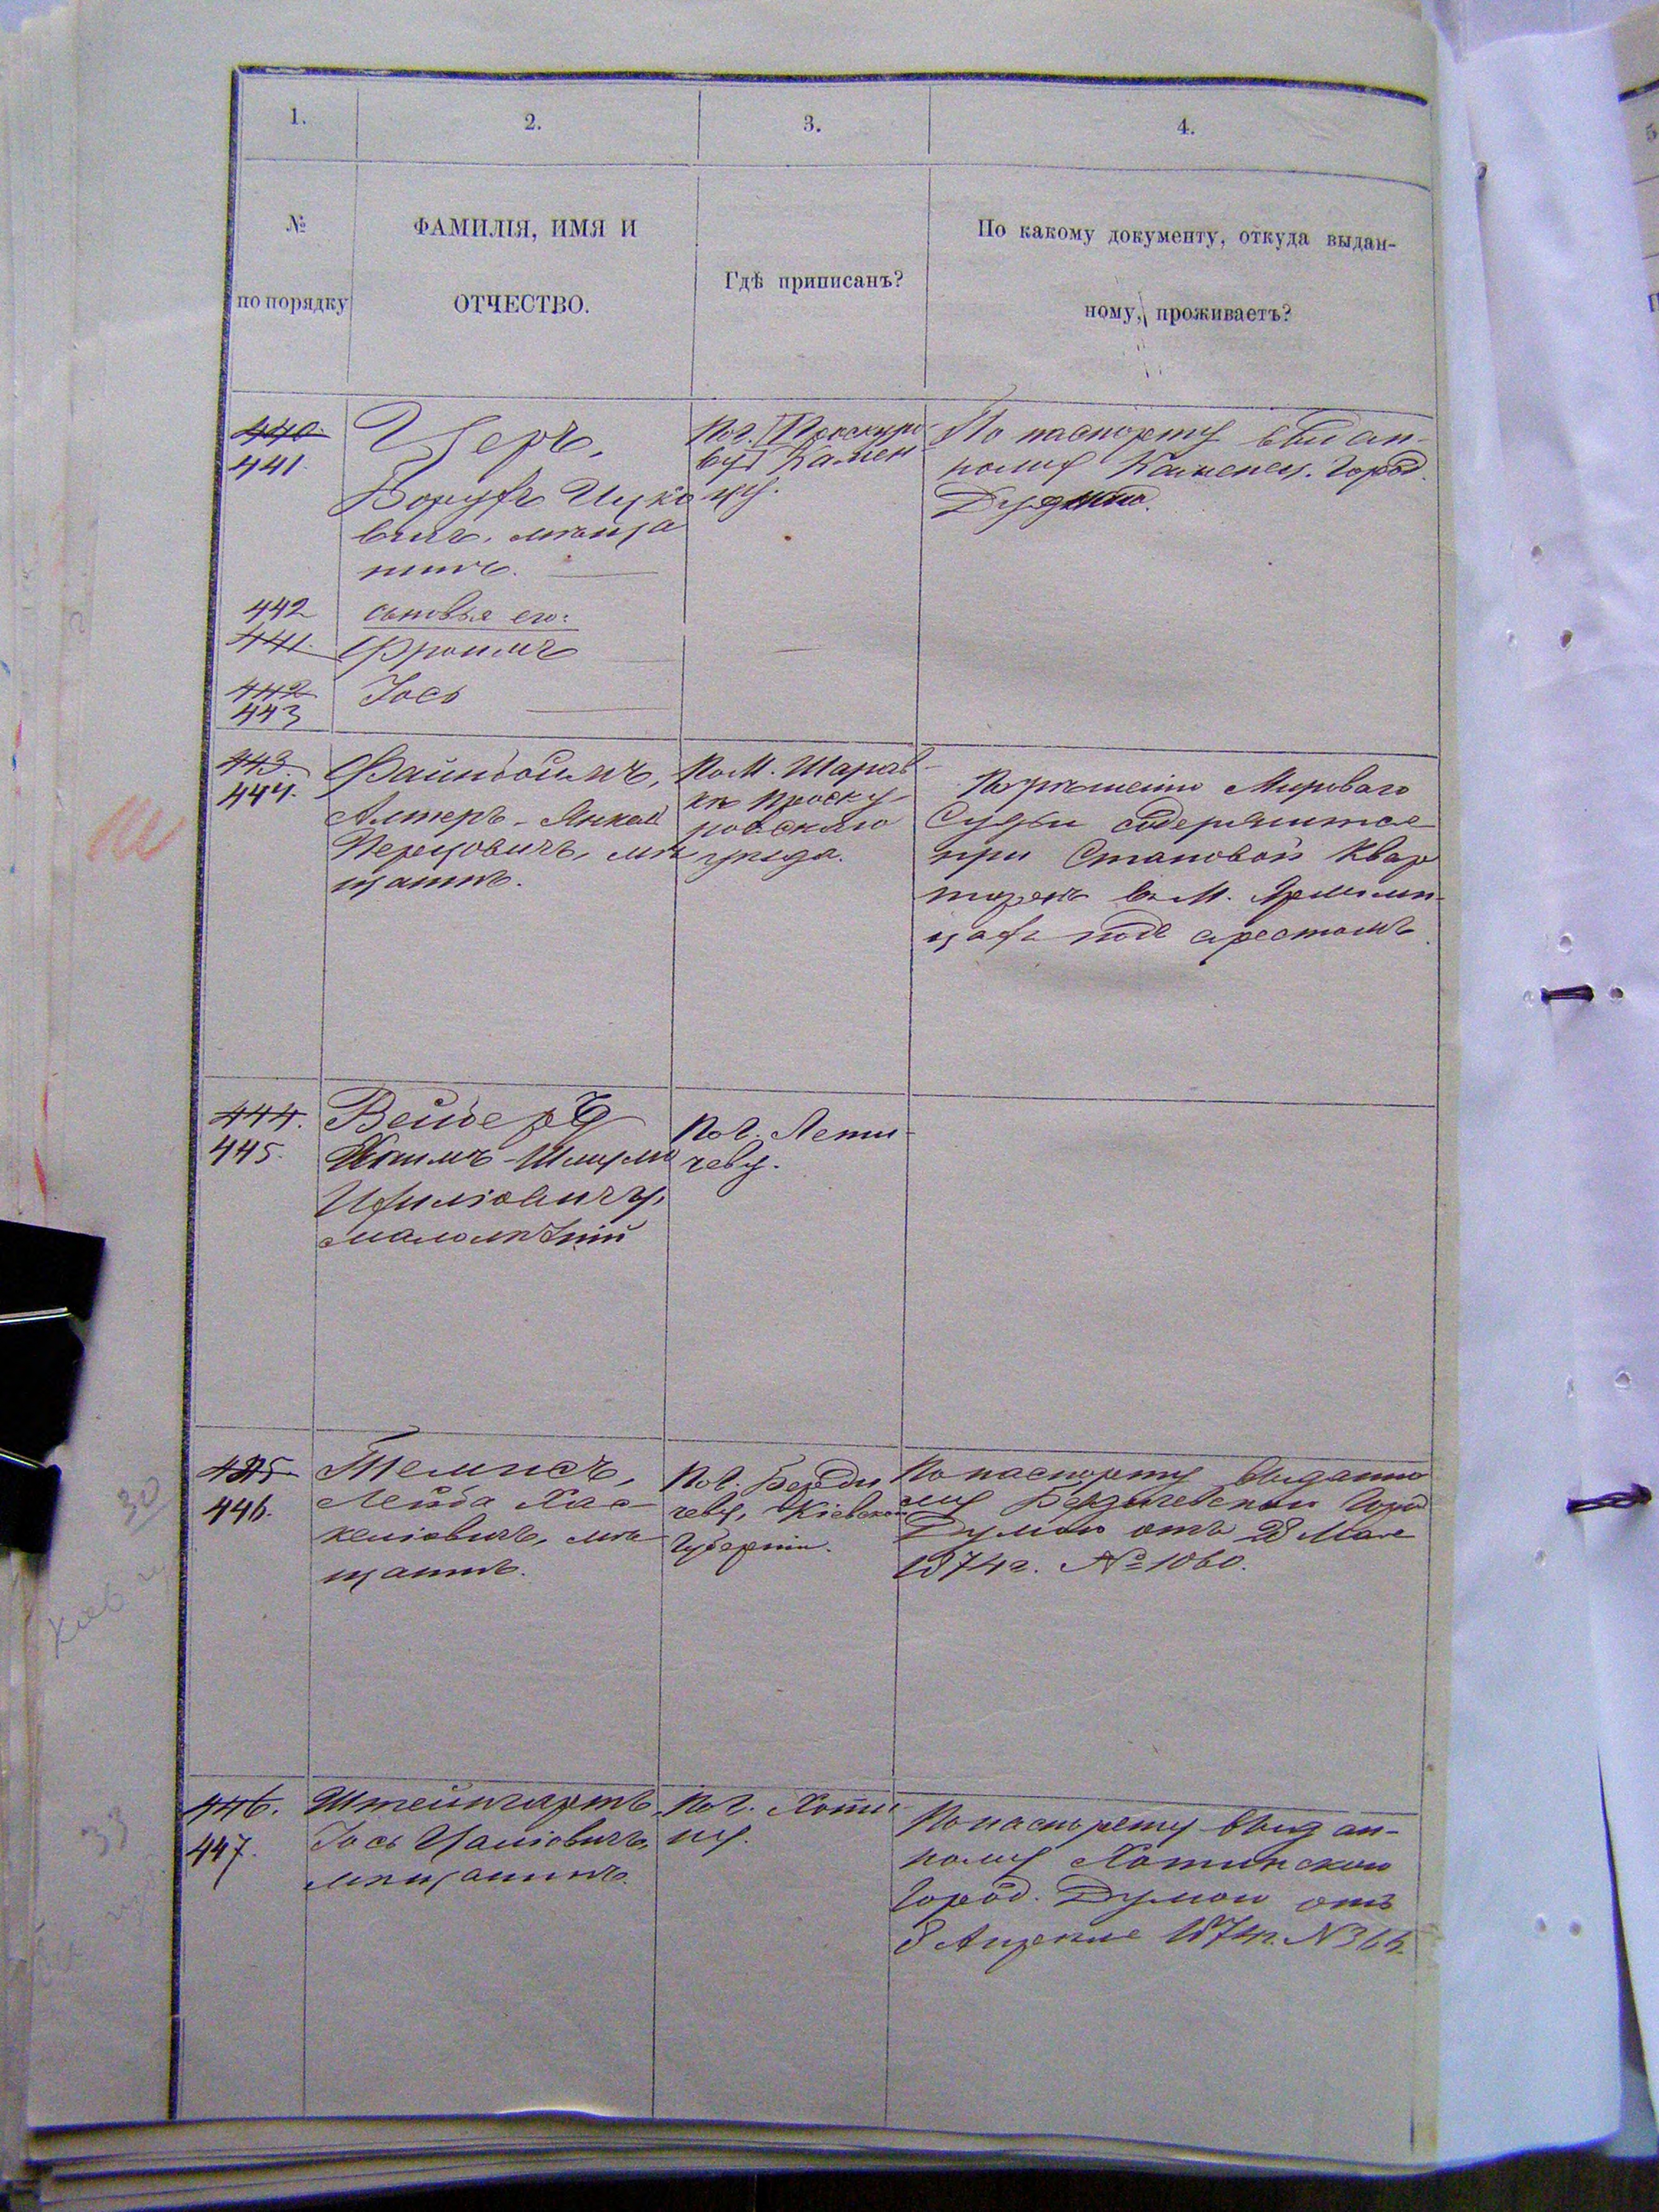 1.
2.
3.
4.
№
по порядку
ФАМИЛІЯ, ИМЯ И
ОТЧЕСТВО.
Гдѣ приписанъ?
По какому документу, откуда выдан-
ному, проживаетъ?
440.
441.
Церъ,
Борухъ Ицко
вичъ, мѣща
нинъ.
По г. [Проскуро
ву] Камен
цу.
По паспорту выдан-
ному Каменец. Город.
Думою.
442
сыновья его:
441.
Фроимъ
442
443
Іось
443.
444.
Файнбоймъ,
Алтеръ-Янкел
Перцовичъ, мѣ
щанинъ.
По М. Шарав-
кѣ Проску-
ровскаго
уѣзда.
По рѣшенію Мироваго
Судьи содержится
при Становой Квар
тирѣ въ М. Ярмолин-
цахъ подъ арестомъ.
444.
445.
Вейберъ
Хаимъ-Шлумо
Ихиліовичъ,
малолѣтній
По г. Лети-
чеву.
445
446.
Темнсъ,
Лейба Хас-
келіовичъ, мѣ
щанинъ.
По г. Берди
чеву, Кіевской
Губерніи.
По паспорту выданно
му Бердичевскою Город
Думою отъ 28 Мая
1874 г. № 1060.
446.
447.
Штейнгартъ,
Іось Цаліовичъ,
мѣщанинъ.
По г. Хоти
ну.
По паспорту выдан-
ному Хотинскою
Город. Думою отъ
8 Апреля 1874 г. №
30
33